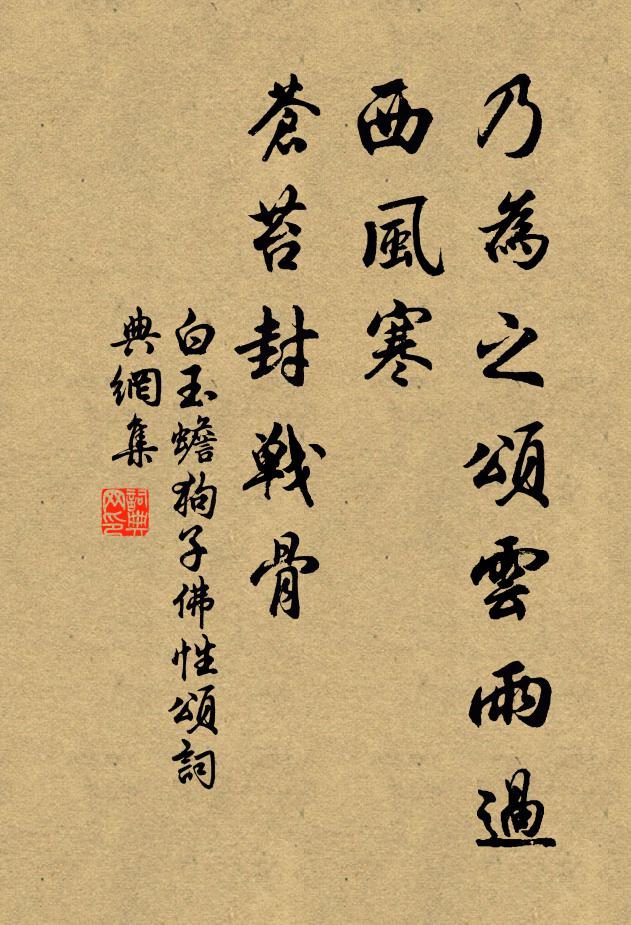 乃為之頌雲雨過
西風寒
蒼苔封戰骨
白玉蟾狗子佛性頌詞
典網集
詞典網印